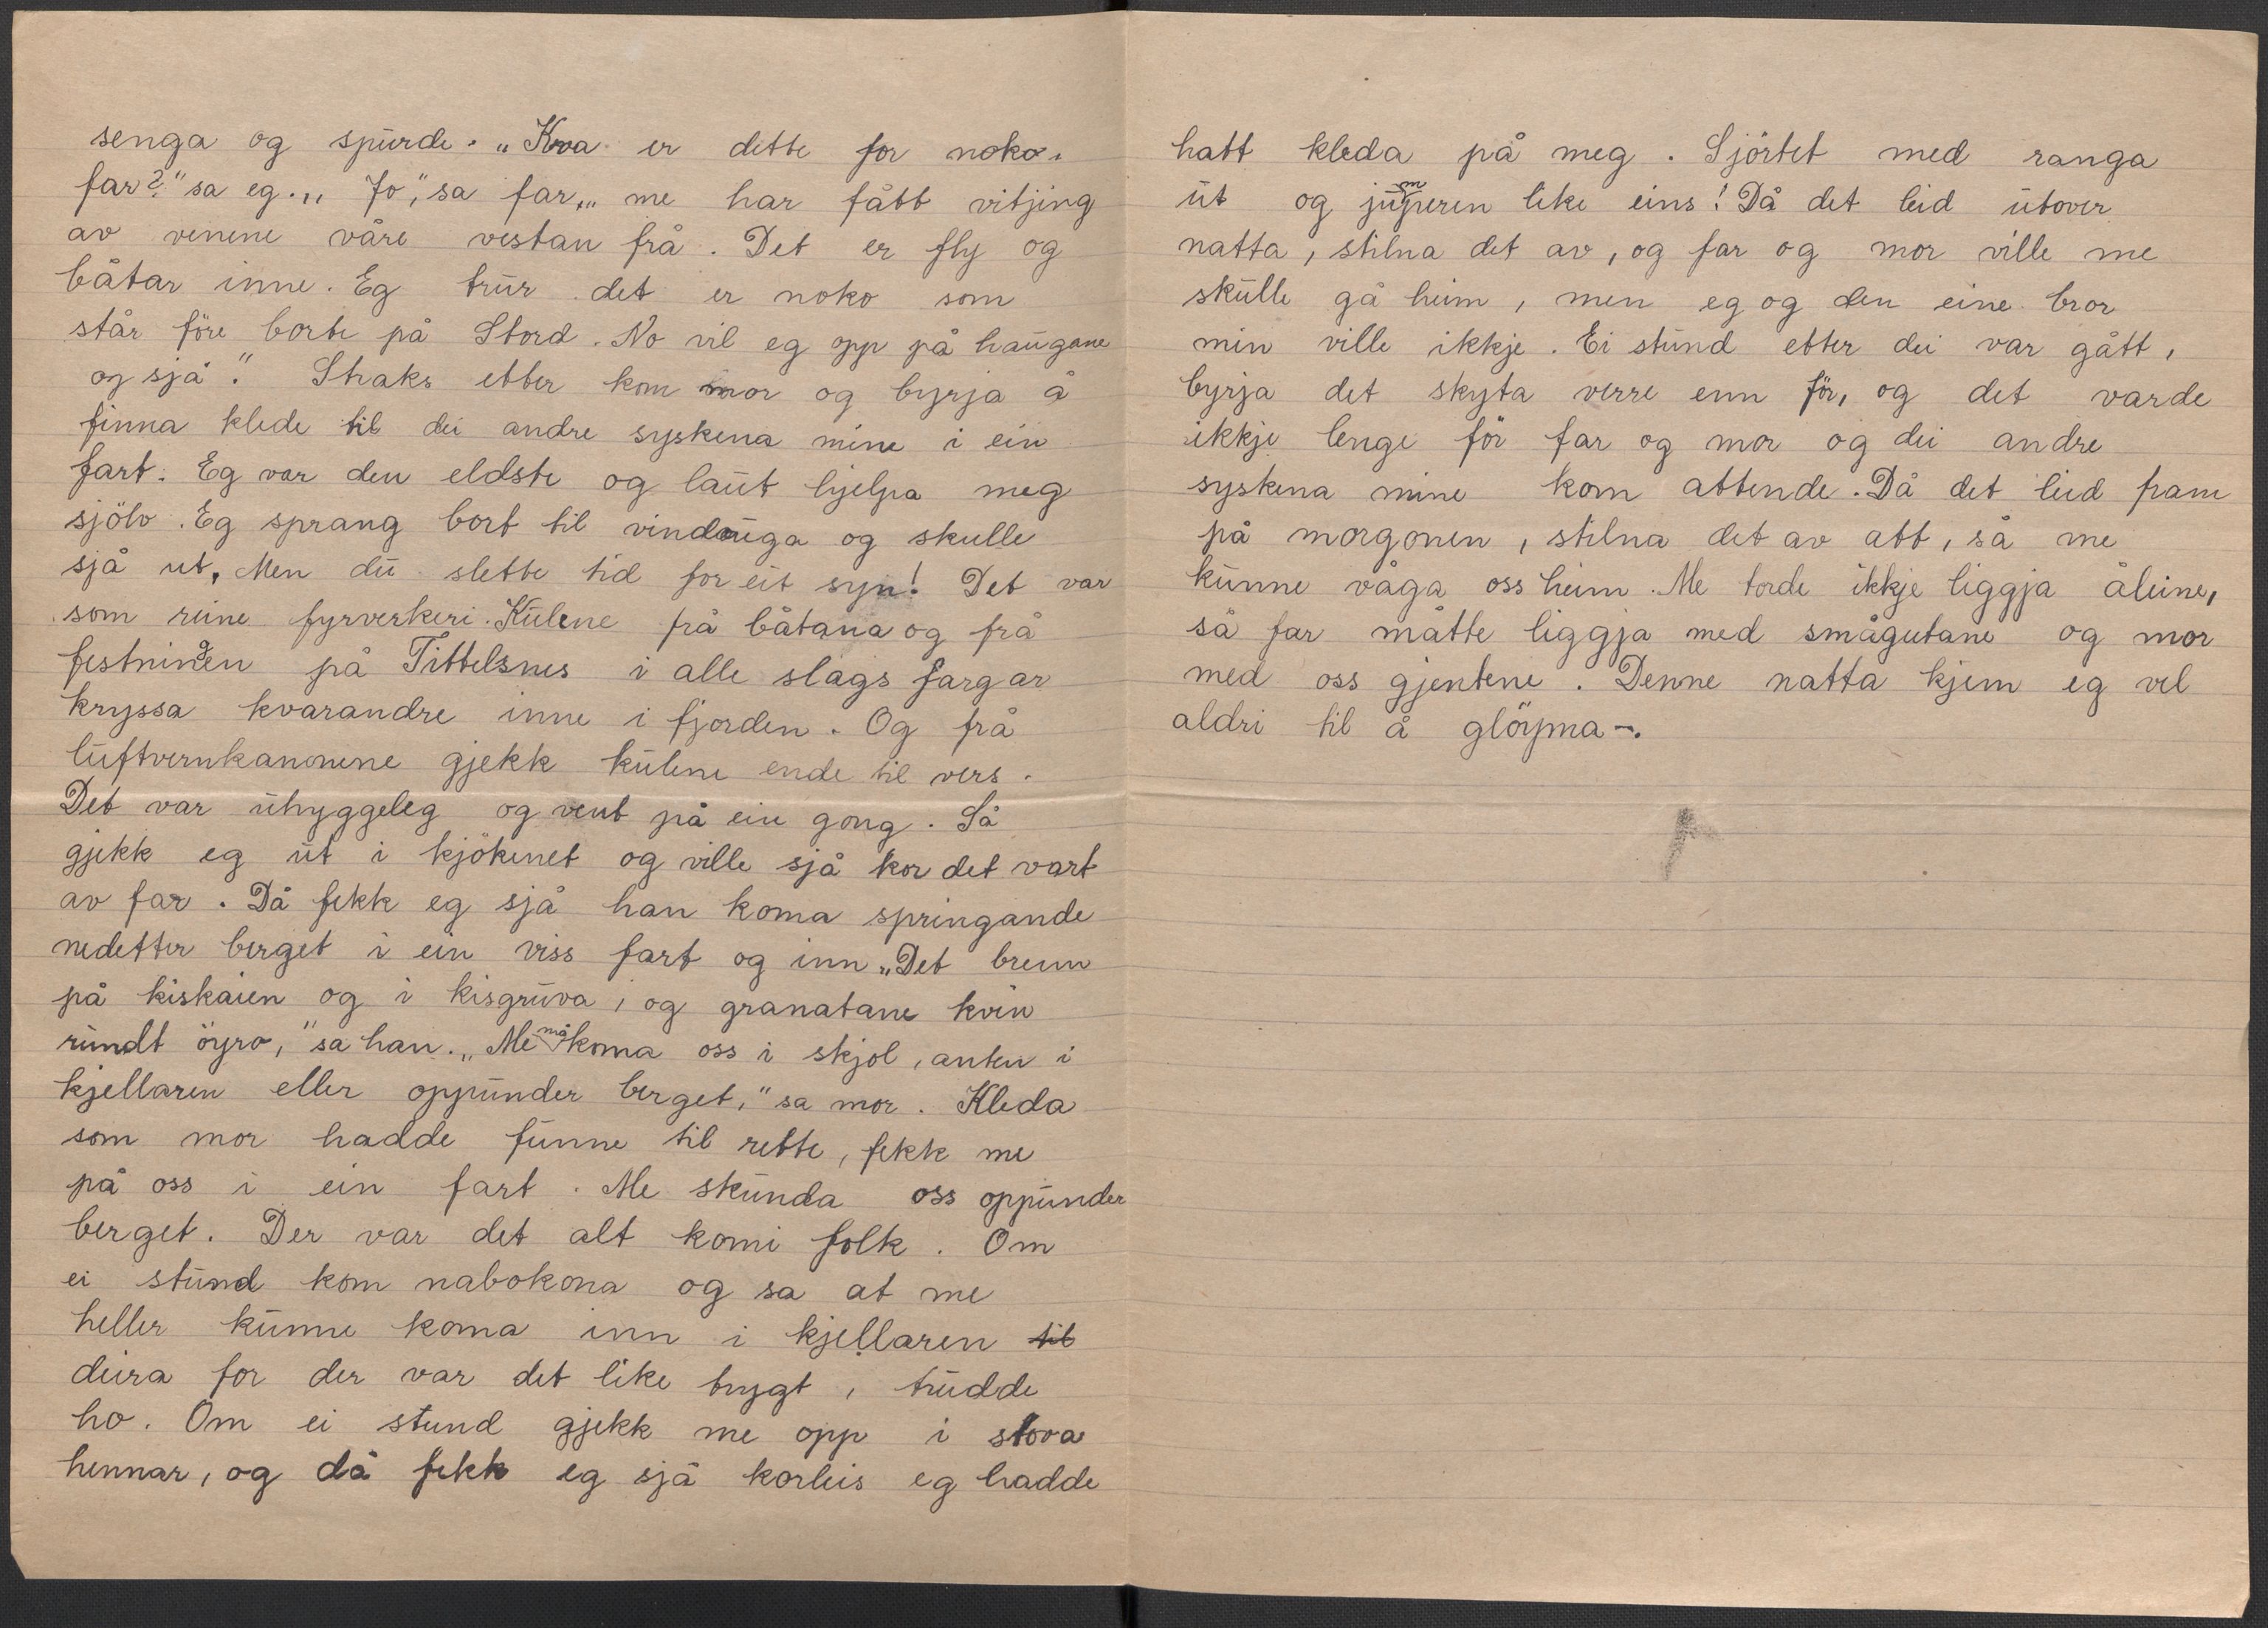 senga og spurde. „Kva er dette for noko.
far?" sa eg. „Jo", sa far, „me har fått vitjing
av venene våre vestan frå. Det er fly og
båtar inne. Eg trur det er noko som
står före borte på Stord. No vil eg opp på haugane
og sjå". Straks etter kom mor og byrja å
finna klede til dei andre syskena mine i ein
fart. Eg var den eldste og laut hjelpa meg
sjölv. Eg sprang bort til vindauga og skulle
sjå ut. Men du slette tid for eit syn! Det var
som reine fyrverkeri. Kulene frå båtana og frå
festningen på Tittelsnes i alle slags fargar
kryssa kvarandre inne i fjorden. Og frå
luftvernkanonene gjekk kulene ende til vers.
Det var uhyggeleg og vent på ein gong. Så
gjekk eg ut i kjökenet og ville sjå kor det vart
av far. Då fekk eg sjå han koma springande
nedetter berget i ein viss fart og inn „Det brenn
på kiskaien og i kisgruva, og granatane kvin
rundt öyro," sa han. „Me må koma oss i skjol, anten i
kjellaren eller oppunder berget," sa mor. Kleda
som mor hadde funne til rette, fekk me
på oss i ein fart. Me skunda oss oppunder
berget. Der var det alt komi folk. Om
ei stund kom nabokona og sa at me
heller kunne koma inn i kjellaren til
deira for der var det like trygt, trudde
ho. Om ei stund gjekk me opp i stova
hennar, og då fekk eg sjå korleis eg hadde
hatt kleda på meg. Sjörtet med ranga
ut og jumperen like eins! Då det leid utover
natta, stilna det av, og far og mor ville me
skulle gå heim, men eg og den eine bror
min ville ikkje. Ei stund etter dei var gått,
byrja det skyta verre enn för, og det varde
ikkje lenge för far og mor og dei andre
syskena mine kom attende. Då det leid fram
på morgonen, stilna det av att, så me
kunne våga oss heim. Me torde ikkje liggja åleine,
så far måtte liggja med smågutane og mor
med oss gjentene. Denne natta kjem eg vel
aldri til å glöyma -.